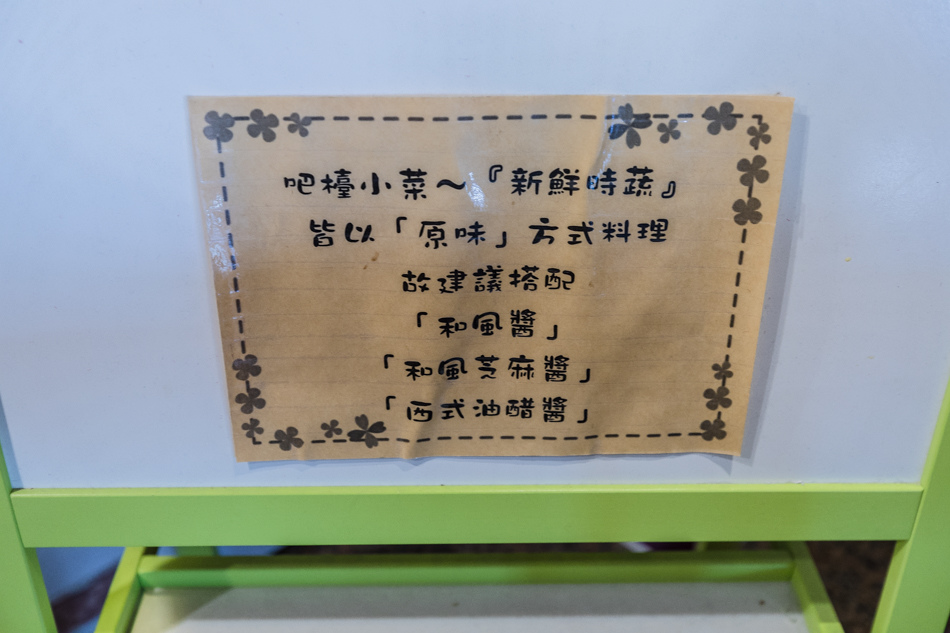 吧檯小菜～『新鮮時蔬』
皆以「原味」方式料理
故建議搭配
「和風醬」
「和風芝麻醬」
「西式油醋醬」